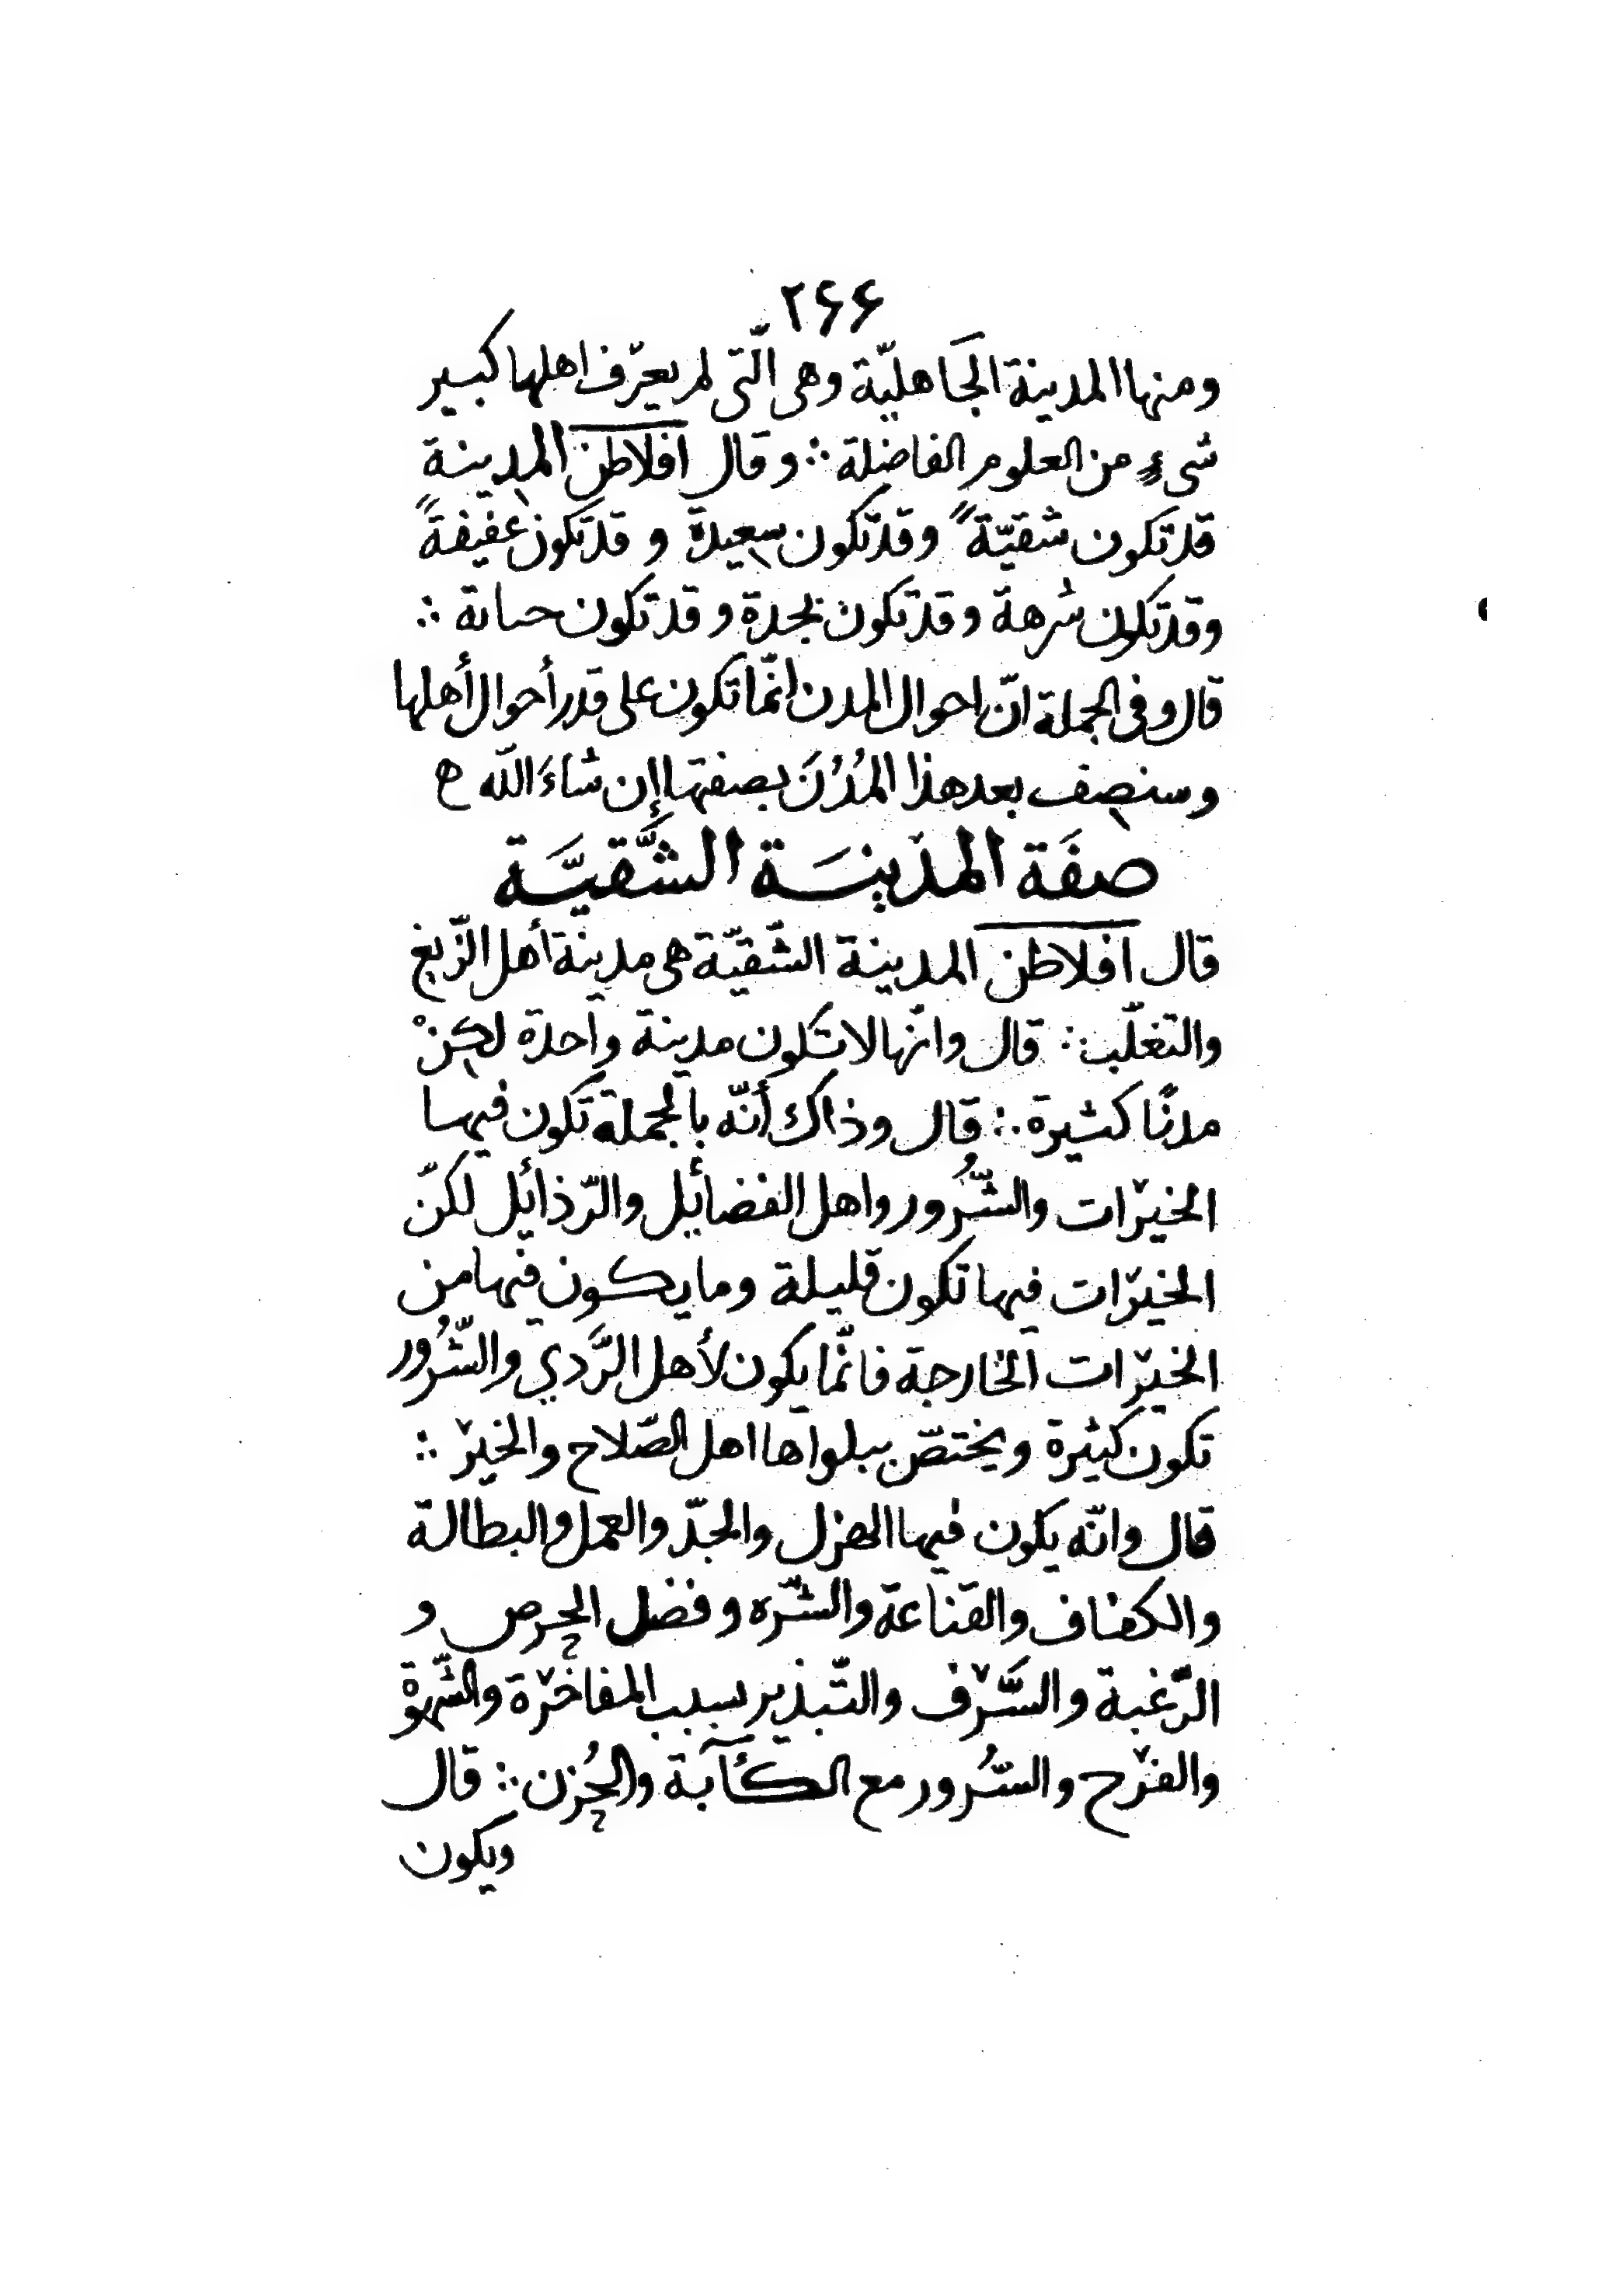 ٢۶۶
ومنها المدينة الجَاهليّة وهى الّتى لم يعرّف اهلها كبير
شىءٍ من العلوم الفاضلة ∴ وقال افلاطن المدينة
قد تكون شقيّةً وقد تكون سعيدة وقد تكون عفيفةً
وقد تكون شرهة وقد تكون نجدة وقد تكون ∴
قال وفى الجملة انّ احوال المدن انّما تكون على قدر أحوال أهلها
وسنصف بعد هذا المُدُنَ بصفتها إن شاءَ اللّه ه
صفَة المدينَة الشَّقيَّة
قال افلاطن المدينة الشّقيّة هى مدينة أهل الزّيغ
والتغلّب ∴ قال وانّها لا تكون مدينة واحدة لكنْ
مدنًا كثيرة ∴ قال وذاك أنّه بالجملة تكون فيها
الخيرات والشّرُور واهل الفضائل والرّذائل لكنّ
الخيرات فيها تكون قليلة وما يكون فيها من
الخيرات الخارجة فانّما يكون لأهل الرَّدي والشّرُور
تكون كثيرة ويختصّ ببلواها اهل الصّلاح والخير ∴
قال وانّه يكون فيها الهزل والجدّ والعمل والبطالة
والكفاف والقناعة والشّره وفضل الحرص و
الرّغبة والسَّرف والتّبذير بسبب المفاخرة والشّهوة
والفرح والسّرُور مع الكآبة والحُزن ∴ قال
ويكون